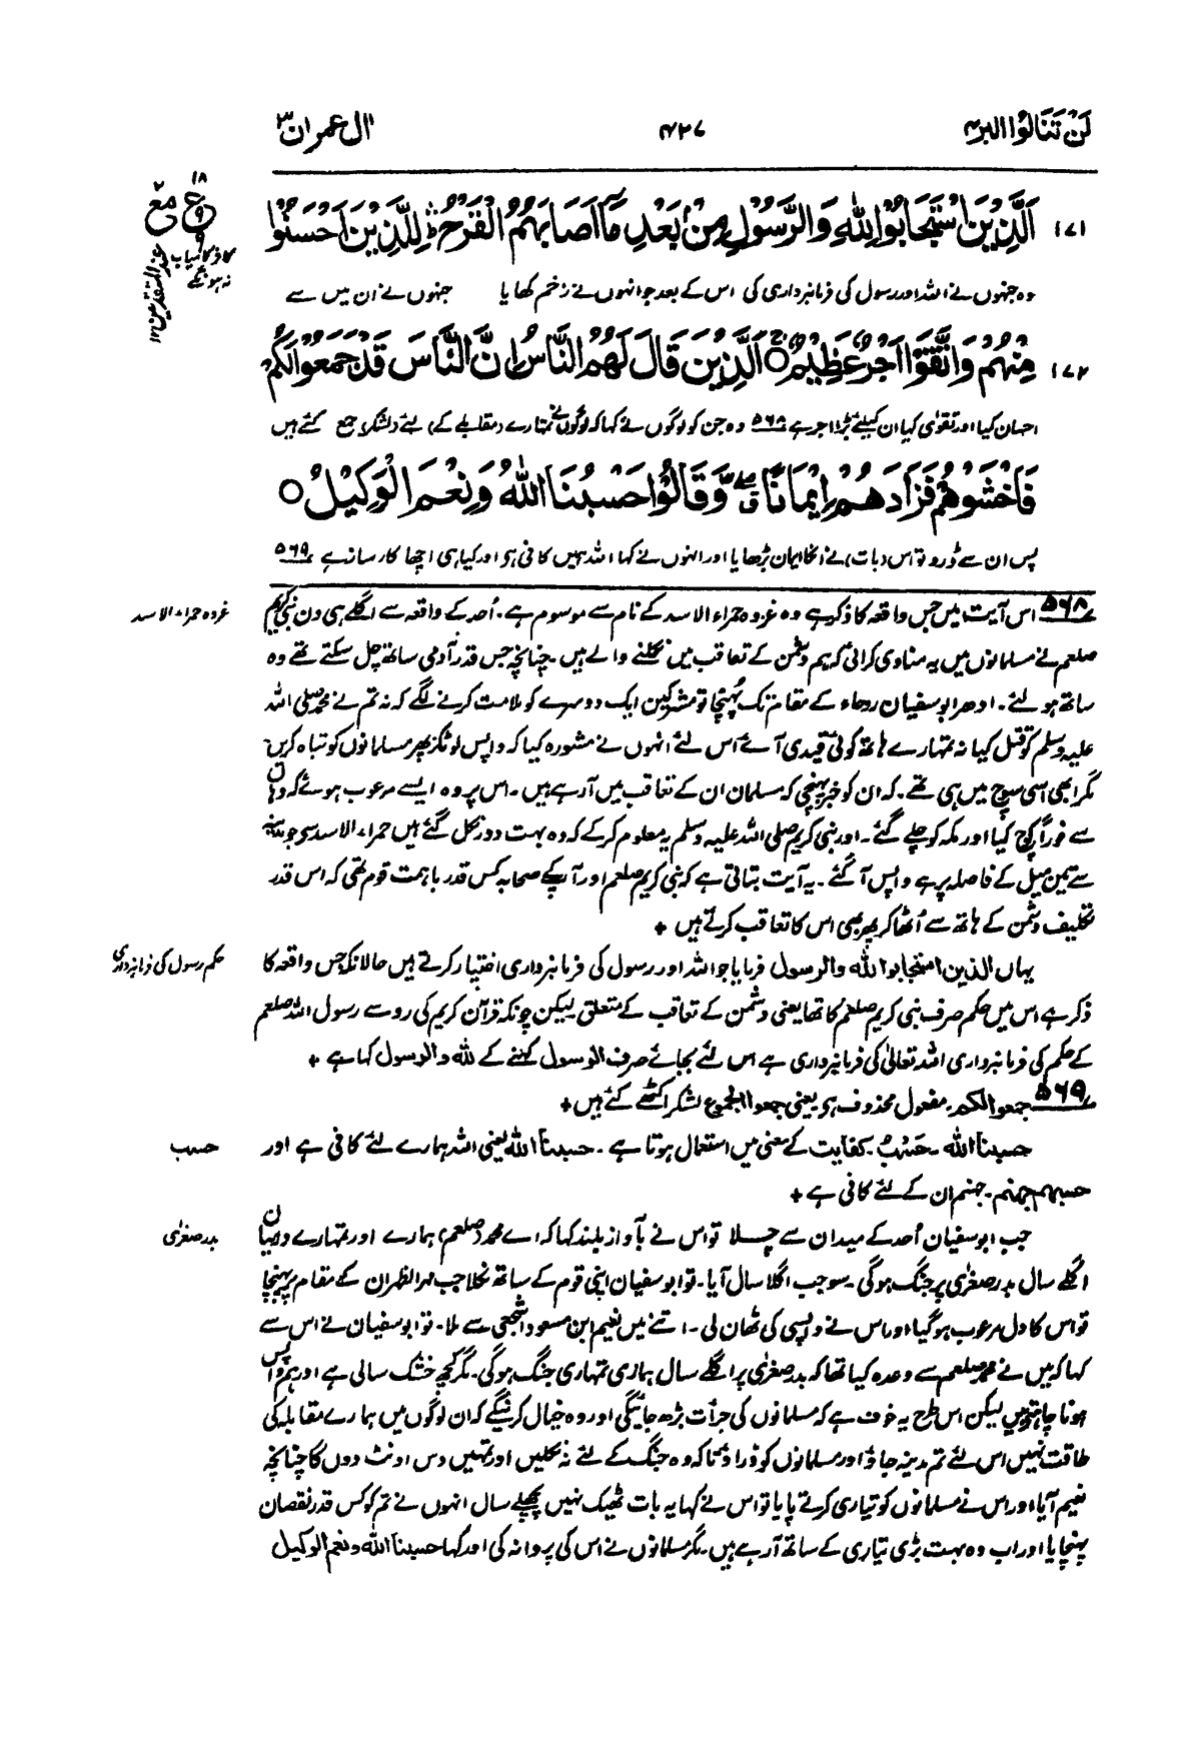 لَنْ تَنَالُوا البر ۴
۴۲۷
اٰل عمران ۳
۱۷۱ اَلَّذِيْنَ اسْتَجَابُوْا لِلّٰهِ وَالرَّسُوْلِ مِنْۢ بَعْدِ مَاۤ اَصَابَهُمُ الْقَرْحُ ۛؕ لِلَّذِيْنَ اَحْسَنُوْا
وہ جنہوں نے اللہ اور رسول کی فرمانبرداری کی اس کے بعد جو انہوں نے زخم کھایا جنہوں نے ان میں سے
۱۷۲ مِنْهُمْ وَاتَّقَوْا اَجْرٌ عَظِيْمٌ ۚ○ اَلَّذِيْنَ قَالَ لَهُمُ النَّاسُ اِنَّ النَّاسَ قَدْ جَمَعُوْا لَكُمْ
احسان کیا اور تقویٰ کیا ان کیلئے بڑا اجر ہے ۵۶۸ وہ جن کو لوگوں نے کہا کہ لوگوں نے تمہارے (مقابلے کے) لئے (لشکر) جمع کئے ہیں
فَاخْشَوْهُمْ فَزَادَهُمْ اِيْمَانًا ۖ ق وَّقَالُوْا حَسْبُنَا اللّٰهُ وَنِعْمَ الْوَكِيْلُ ○
پس ان سے ڈرو تو اس (بات) نے انکا ایمان بڑھایا اور انہوں نے کہا اللہ ہمیں کافی ہی اور کیا ہی اچھا کارساز ہے ۵۶۹
غزوہ حمراء الاسد
۵۶۸ اس آیت میں جس واقعہ کا ذکر ہے وہ غزوہ حمراء الاسد کے نام سے موسوم ہے۔ اُحد کے واقعہ سے اگلے ہی دن نبی کریم
صلعم نے مسلمانوں میں یہ منادی کرائی کہ ہم دشمن کے تعاقب میں نکلنے والے ہیں۔ چنانچہ جس قدر آدمی ساتھ چل سکتے تھے وہ
ساتھ ہو لئے۔ ادھر ابوسفیان روحاء کے مقام تک پہنچا تو مشرکین ایک دوسرے کو ملامت کرنے لگے کہ نہ تم نے محمد صلی اللہ
علیہ وسلم کو قتل کیا نہ تمہارے ہاتھ کوئی قیدی آئے اس لئے انہوں نے مشورہ کیا کہ واپس لوٹکر پھر مسلمانوں کو تباہ کریں
مگر ابھی اسی سوچ میں ہی تھے۔ کہ ان کو خبر پہنچی کہ مسلمان ان کے تعاقب میں آ رہے ہیں۔ اس پر وہ ایسے مرعوب ہوئے کہ وہاں
سے فوراً کوچ کیا اور مکہ کو چلے گئے۔ اور نبی کریم صلی اللہ علیہ وسلم یہ معلوم کرکے کہ وہ بہت دور نکل گئے ہیں حمراء الاسد سی جو مدینہ
سے تین میل کے فاصلہ پر ہے واپس آ گئے۔ یہ آیت بتاتی ہے کہ نبی کریم صلعم اور آپکے صحابہ کس قدر باہمت قوم تھی کہ اس قدر
تکلیف دشمن کے ہاتھ سے اُٹھا کر پھر بھی اس کا تعاقب کرتے ہیں +
حکم رسول کی فرمانبرداری
یہاں الذین استجابوا للہ والرسول فرمایا جو اللہ اور رسول کی فرمانبرداری اختیار کرتے ہیں حالانکہ جس واقعہ کا
ذکر ہے اس میں حکم صرف نبی کریم صلعم کا تھا یعنی دشمن کے تعاقب کے متعلق لیکن چونکہ قرآن کریم کی رو سے رسول اللہ صلعم
کے حکم کی فرمانبرداری اللہ تعالیٰ کی فرمانبرداری ہے اس لئے بجائے صرف الرسول کہنے کے للہ والرسول کہا ہے +
۵۶۹ جمعوا لکم۔ مفعول محذوف ہی یعنی جمعوا الجموع لشکر اکٹھے کئے ہیں +
حسب
حسبنا اللہ۔ حَسْبُ۔ کفایت کے معنی میں استعمال ہوتا ہے۔ حسبنا اللہ یعنی اللہ ہمارے لئے کافی ہے اور
حسبہم جہنم۔ جہنم ان کے لئے کافی ہے +
بدر صغریٰ
جب ابوسفیان اُحد کے میدان سے چلا تو اس نے بآواز بلند کہا کہ اے محمد (صلعم) ہمارے اور تمہارے درمیان
اگلے سال بدر صغریٰ پر جنگ ہوگی۔ سو جب اگلا سال آیا۔ تو ابوسفیان اپنی قوم کے ساتھ نکلا جب مرالظہران کے مقام پر پہنچا
تو اس کا دل مرعوب ہوگیا اور اس نے واپسی کی ٹھان لی۔ اتنے میں نعیم ابن مسعود اشجعی سے ملا۔ تو ابوسفیان نے اس سے
کہا کہ میں نے محمد صلعم سے وعدہ کیا تھا کہ بدر صغریٰ پر اگلے سال ہماری تمہاری جنگ ہوگی۔ مگر کچھ خشک سالی ہے اور ہم واپس
ہونا چاہتے ہیں لیکن اس طرح یہ خوف ہے کہ مسلمانوں کی جرأت بڑھ جائیگی اور وہ خیال کرینگے کہ ان لوگوں میں ہمارے مقابلہ کی
طاقت نہیں اس لئے تم مدینہ جاؤ اور مسلمانوں کو ذرا ڈرا تاکہ وہ جنگ کے لئے نہ نکلیں اور تمہیں دس اونٹ دوں گا چنانچہ
نعیم آیا اور اس نے مسلمانوں کو تیاری کرتے پایا تو اس نے کہا یہ بات ٹھیک نہیں پچھلے سال انہوں نے تم کو کس قدر نقصان
پہنچایا اور اب وہ بہت بڑی تیاری کے ساتھ آ رہے ہیں۔ مگر مسلمانوں نے اس کی پروا نہ کی اور کہا حسبنا اللہ ونعم الوکیل